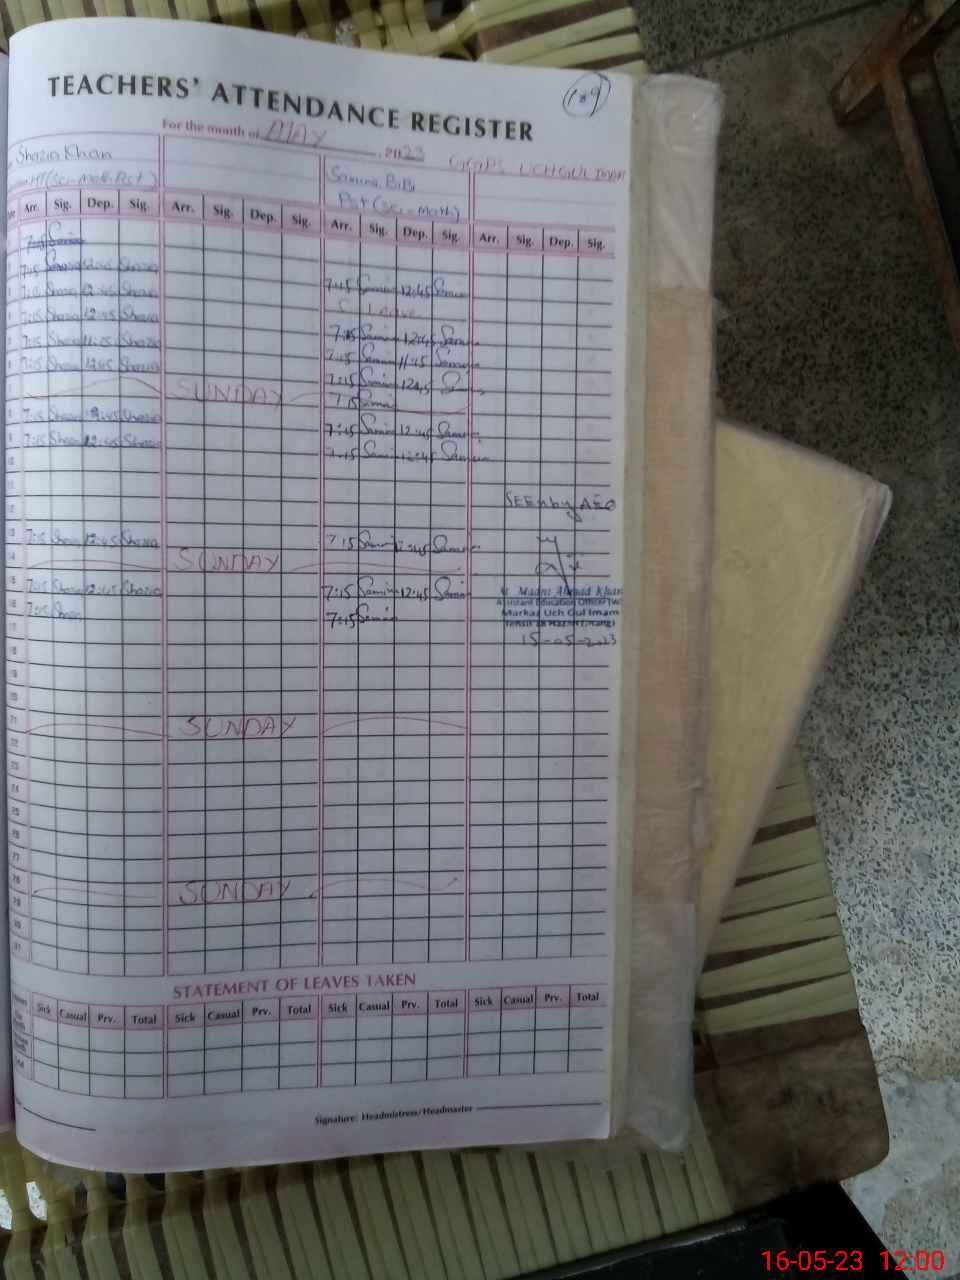 189
TEACHERS' ATTENDANCE REGISTER
For the month of MAY, 2023
Shazia Khan
Samina BiBi
Pst (Sci-Math)
Arr. Sig. Dep. Sig. Arr. Sig. Dep. Sig. Arr. Sig. Dep. Sig. Arr. Sig. Dep. Sig.
7:45 Shazia 12:45 Shazia
7:15 Shazia 12:45 Shazia 7:45 Samina 12:45 Samina
7:15 Shazia 12:45 Shazia C. Leave
7:15 Shazia 11:45 Shazia 7:45 Samina 12:45 Samina
7:15 Shazia 12:45 Shazia 7:45 Samina 11:45 Samina
7:15 Samina 12:45
SUNDAY 7:15 Samina
8 7:15 Shazia 12:45 Shazia 7:45 Samina 12:45 Samina
9 7:15 Shazia 12:45 Shazia 7:15 Samina 12:45 Samina
10
11
SEEN by AEO
13 7:15 Shazia 12:45 Shazia 7:15 Samina 12:45 Samina
14 SUNDAY
15 7:15 Shazia 12:45 Shazia 7:15 Samina 12:45 Samina
Ahmad Khan
Assistant Education Officer (W)
16 7:15 Shazia 7:15 Samina
Markaz Uch Gul Imam
17
15-05-2023
18
19
20
21 SUNDAY
22
23
24
25
26
27
28 SUNDAY
29
30
31
STATEMENT OF LEAVES TAKEN
Sick Casual Prv. Total Sick Casual Prv. Total Sick Casual Prv. Total Sick Casual Prv. Total
Signature: Headmistress/Headmaster
16-05-23 12:00